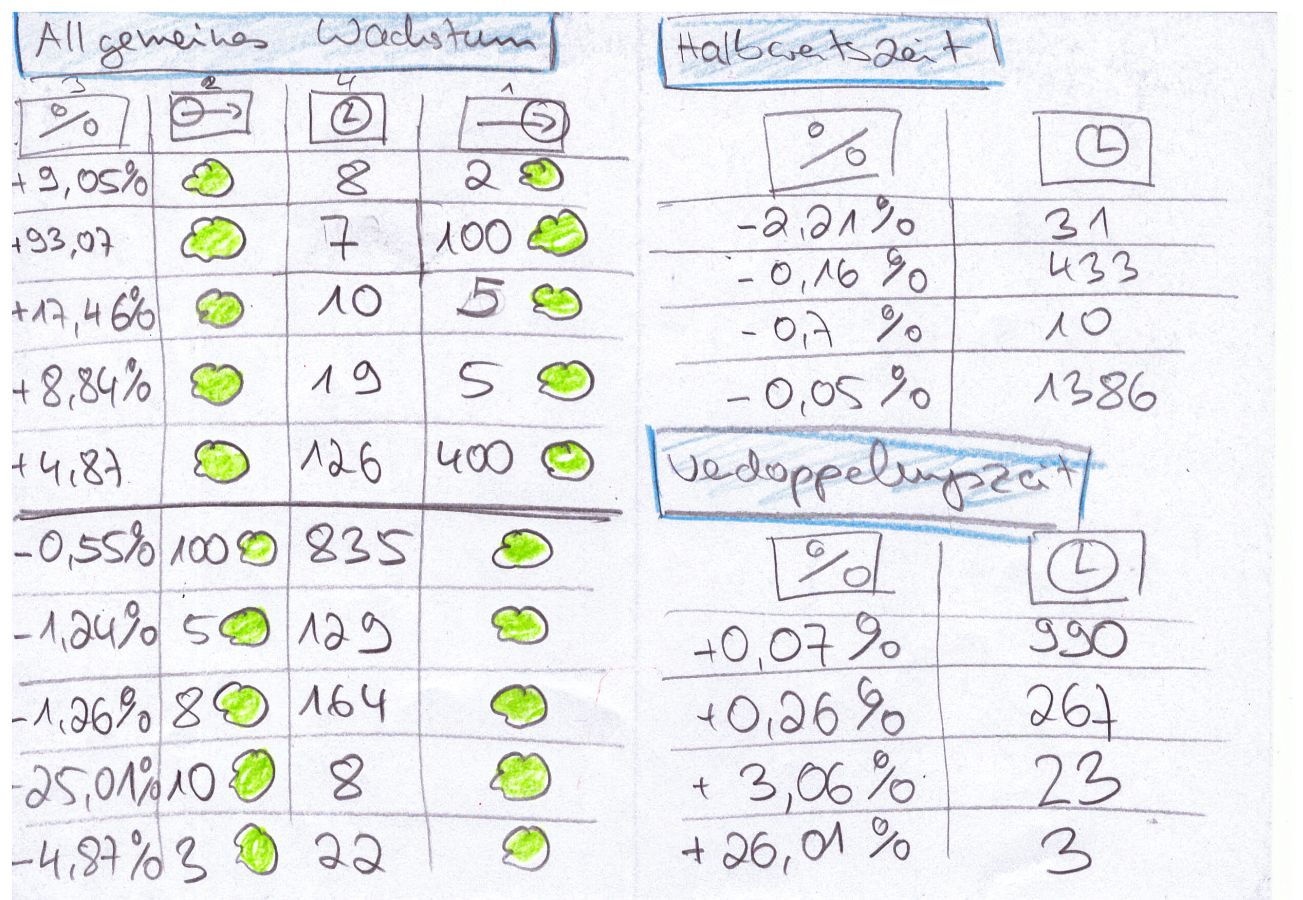 Allgemeines Wachstum
3 2 4 1
%
+9,05% 8 2
+93,07 7 100
+17,46% 10 5
+8,84% 19 5
+4,87 126 400
-0,55% 100 835
-1,24% 5 129
-1,26% 8 164
-25,01% 10 8
-4,87% 3 22
Halbwetszeit
%
-2,21% 31
-0,16% 433
-0,7 % 10
-0,05% 1386
Vedoppelungszeit
%
+0,07% 990
+0,26% 267
+3,06% 23
+26,01% 3